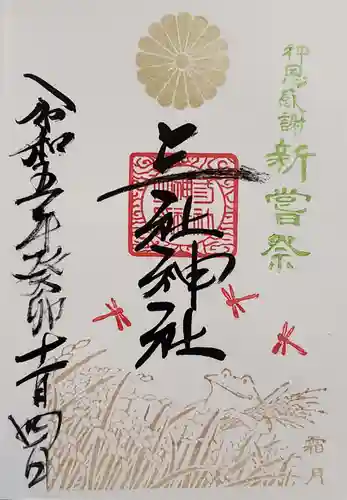 神恩感謝 新嘗祭
三社神社
令和五年癸卯十一月四日
霜月